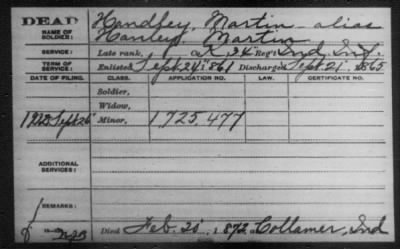 DEAD Handley, Martin - alias
NAME OF SOLDIER: Hanley, Martin
SERVICE: Late rank, Co. K, 34" Reg't Ind. Inf.
TERM OF SERVICE: Enlisted Sept 24", 1861 Discharged Sept. 21", 1865
DATE OF FILING. CLASS. APPLICATION NO. LAW. CERTIFICATE NO.
Soldier,
Widow,
Sept 26" Minor, 1725.477
ADDITIONAL SERVICES:
REMARKS:
Died Feb. 20", 1872, at Collamer, Ind